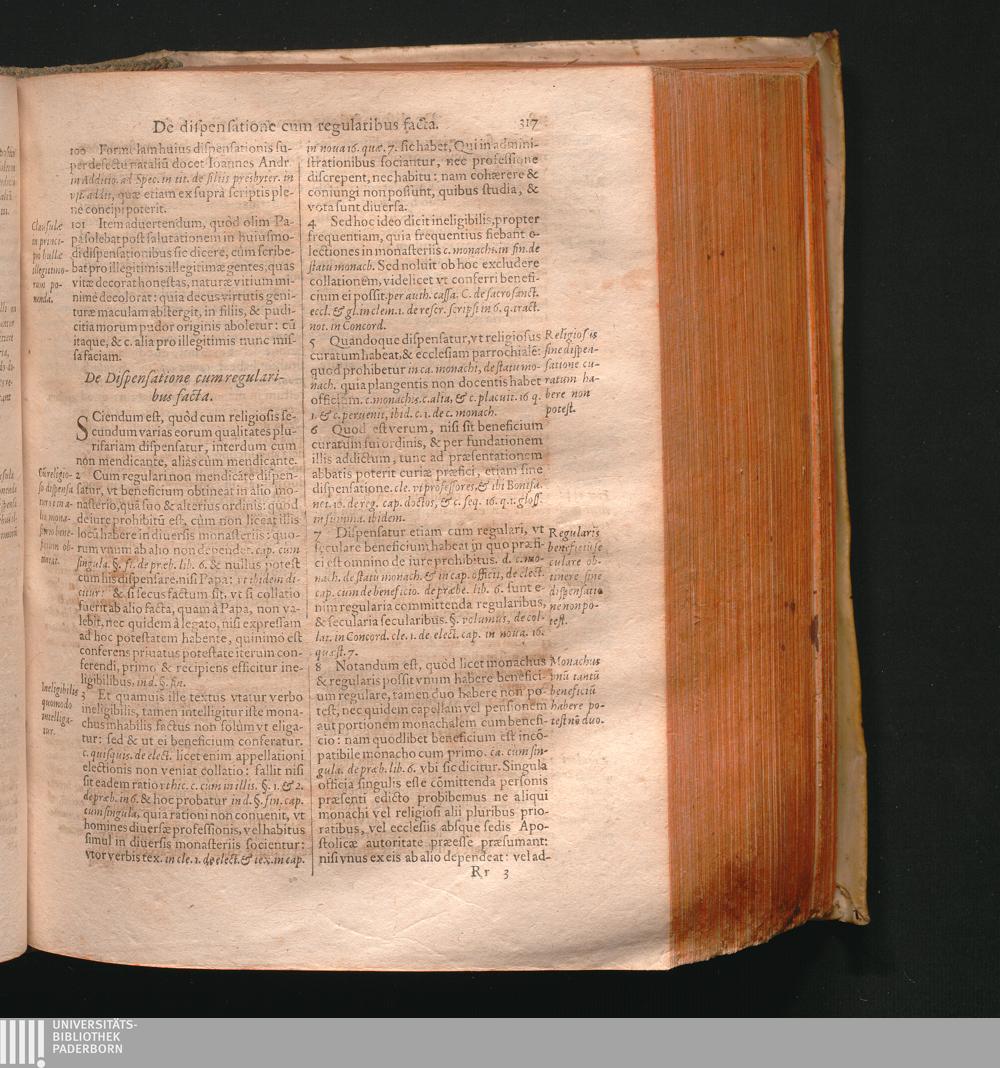 De dispensatione cum regularibus facta. 317
100 Formulam huius dispensationis su-
per defectu nataliū docet Ioannes Andr.
in Additio. ad Spec. in tit. de filiis presbyter. in
vlt. addit, quæ etiam ex suprà scriptis ple-
ne concipi poterit.
101 Item aduertendum, quòd olim Pa-
pa solebat post salutationem in huiusmo-
di dispensationibus sic dicere, cùm scribe-
bat pro illegitimis: illegitimæ gentes, quas
vitæ decorat honestas, naturæ vitium mi-
nimè decolorat: quia decus virtutis geni-
turæ maculam abstergit, in filiis, & pudi-
citia morum pudor originis aboletur: cū
itaque, & c. alia pro illegitimis nunc mis-
sa faciam.
Clausulæ
in princi-
pio bullæ
illegitimo-
rum po-
nenda.
De Dispensatione cum regulari-
bus facta.
SCiendum est, quòd cum religiosis se-
cundum varias eorum qualitates plu-
rifariam dispensatur, interdum cum
non mendicante, aliàs cùm mendicante.
2 Cum regulari non mendicāte dispen-
satur, vt beneficium obtineat in alio mo-
nasterio, quā suo & alterius ordinis: quod
de iure prohibitū est, cùm non liceat illis
locū habere in diuersis monasteriis: quo-
rum vnum ab alio non dependet. cap. cum
singula. §. fi. de præb. lib. 6. & nullus potest
cum his dispensare, nisi Papa: vt ibidem di-
citur: & si secus factum sit, vt si collatio
fuerit ab alio facta, quàm à Papa, non va-
lebit, nec quidem à legato, nisi expressam
ad hoc potestatem habente, quinimò est
conferens priuatus potestate iterum con-
ferendi, primo & recipiens efficitur ine-
ligibilibus, in d. §. fin.
3 Et quamuis ille textus vtatur verbo
ineligibilis, tamen intelligitur iste mona-
chus inhabilis factus non solùm vt eliga-
tur: sed & ut ei beneficium conferatur.
c. quisquis. de elect. licet enim appellationi
electionis non veniat collatio: fallit nisi
sit eadem ratio vt hic. c. cum in illis. §. 1. & 2.
de præb. in 6. & hoc probatur in d. §. fin. cap.
cum singula, quia rationi non conuenit, vt
homines diuersæ professionis, vel habitus
simul in diuersis monasteriis socientur:
vtor verbis tex. in cle. 1. de elect. & tex. in cap.
Cū religio-
so dispensa
tur vt in a-
lio mona-
sterio bene-
ficium ob-
tineat.
Ineligibilis
quomodo
intelliga-
tur.
in noua 16. quæ. 7. sic habet, Qui in admini-
strationibus sociantur, nec professione
discrepent, nec habitu: nam cohærere &
coniungi non possunt, quibus studia, &
vota sunt diuersa.
4 Sed hoc ideo dicit ineligibilis, propter
frequentiam, quia frequentius fiebant e-
lectiones in monasteriis c. monachi. in fin. de
statu monach. Sed noluit ob hoc excludere
collationem, videlicet vt conferri benefi-
cium ei possit. per auth. cassa. C. de sacrosanct.
eccl. & gl. in clem. 1. de rescr. scripsi in 6. q. tract.
not. in Concord.
5 Quandoque dispensatur, vt religiosus
curatum habeat, & ecclesiam parrochialē:
quod prohibetur in ca. monachi, de statu mo-
nach. quia plangentis non docentis habet
officium. c. monachus. c. alia, & c. placuit. 16 q.
1. & c. peruenit, ibid. c. 1. de c. monach.
6 Quod est verum, nisi sit beneficium
curatum sui ordinis, & per fundationem
illis addictum, tunc ad præsentationem
abbatis poterit curiæ præfici, etiam sine
dispensatione. cle. vt professores, & ibi Bonifa.
net. 10. de reg. cap. doctos, & c. seq. 16. q. 1. gloss.
in summa. ibidem.
7 Dispensatur etiam cum regulari, vt
seculare beneficium habeat in quo præfi-
ci est omnino de iure prohibitus. d. c. mo-
nach. de statu monach. & in cap. officii, de elect.
cap. cum de beneficio. de præbe. lib. 6. sunt e-
nim regularia committenda regularibus,
& secularia secularibus. §. volumus, de col-
lat. in Concord. cle. 1. de elect. cap. in noua. 16.
quæst. 7.
8 Notandum est, quòd licet monachus
& regularis possit vnum habere benefici-
um regulare, tamen duo habere non po-
test, nec quidem capellam vel pensionem
aut portionem monachalem cum benefi-
cio: nam quodlibet beneficium est incō-
patibile monacho cum primo. ca. cum sin-
gula. de præb. lib. 6. vbi sic dicitur. Singula
officia singulis esse cōmittenda personis
præsenti edicto probibemus ne aliqui
monachi vel religiosi alii pluribus prio-
ratibus, vel ecclesiis absque sedis Apo-
stolicæ autoritate præesse præsumant:
nisi vnus ex eis ab alio dependeat: vel ad-
Religiosis
sine dispen-
satione cu-
ratum ha-
bere non
potest.
Regularis
beneficiū se
culare ob-
tinere sine
dispensatio
ne non po-
test.
Monachus
vnū tantū
beneficiū
habere po-
test nō duo.
Rr 3
UNIVERSITÄTS-
BIBLIOTHEK
PADERBORN